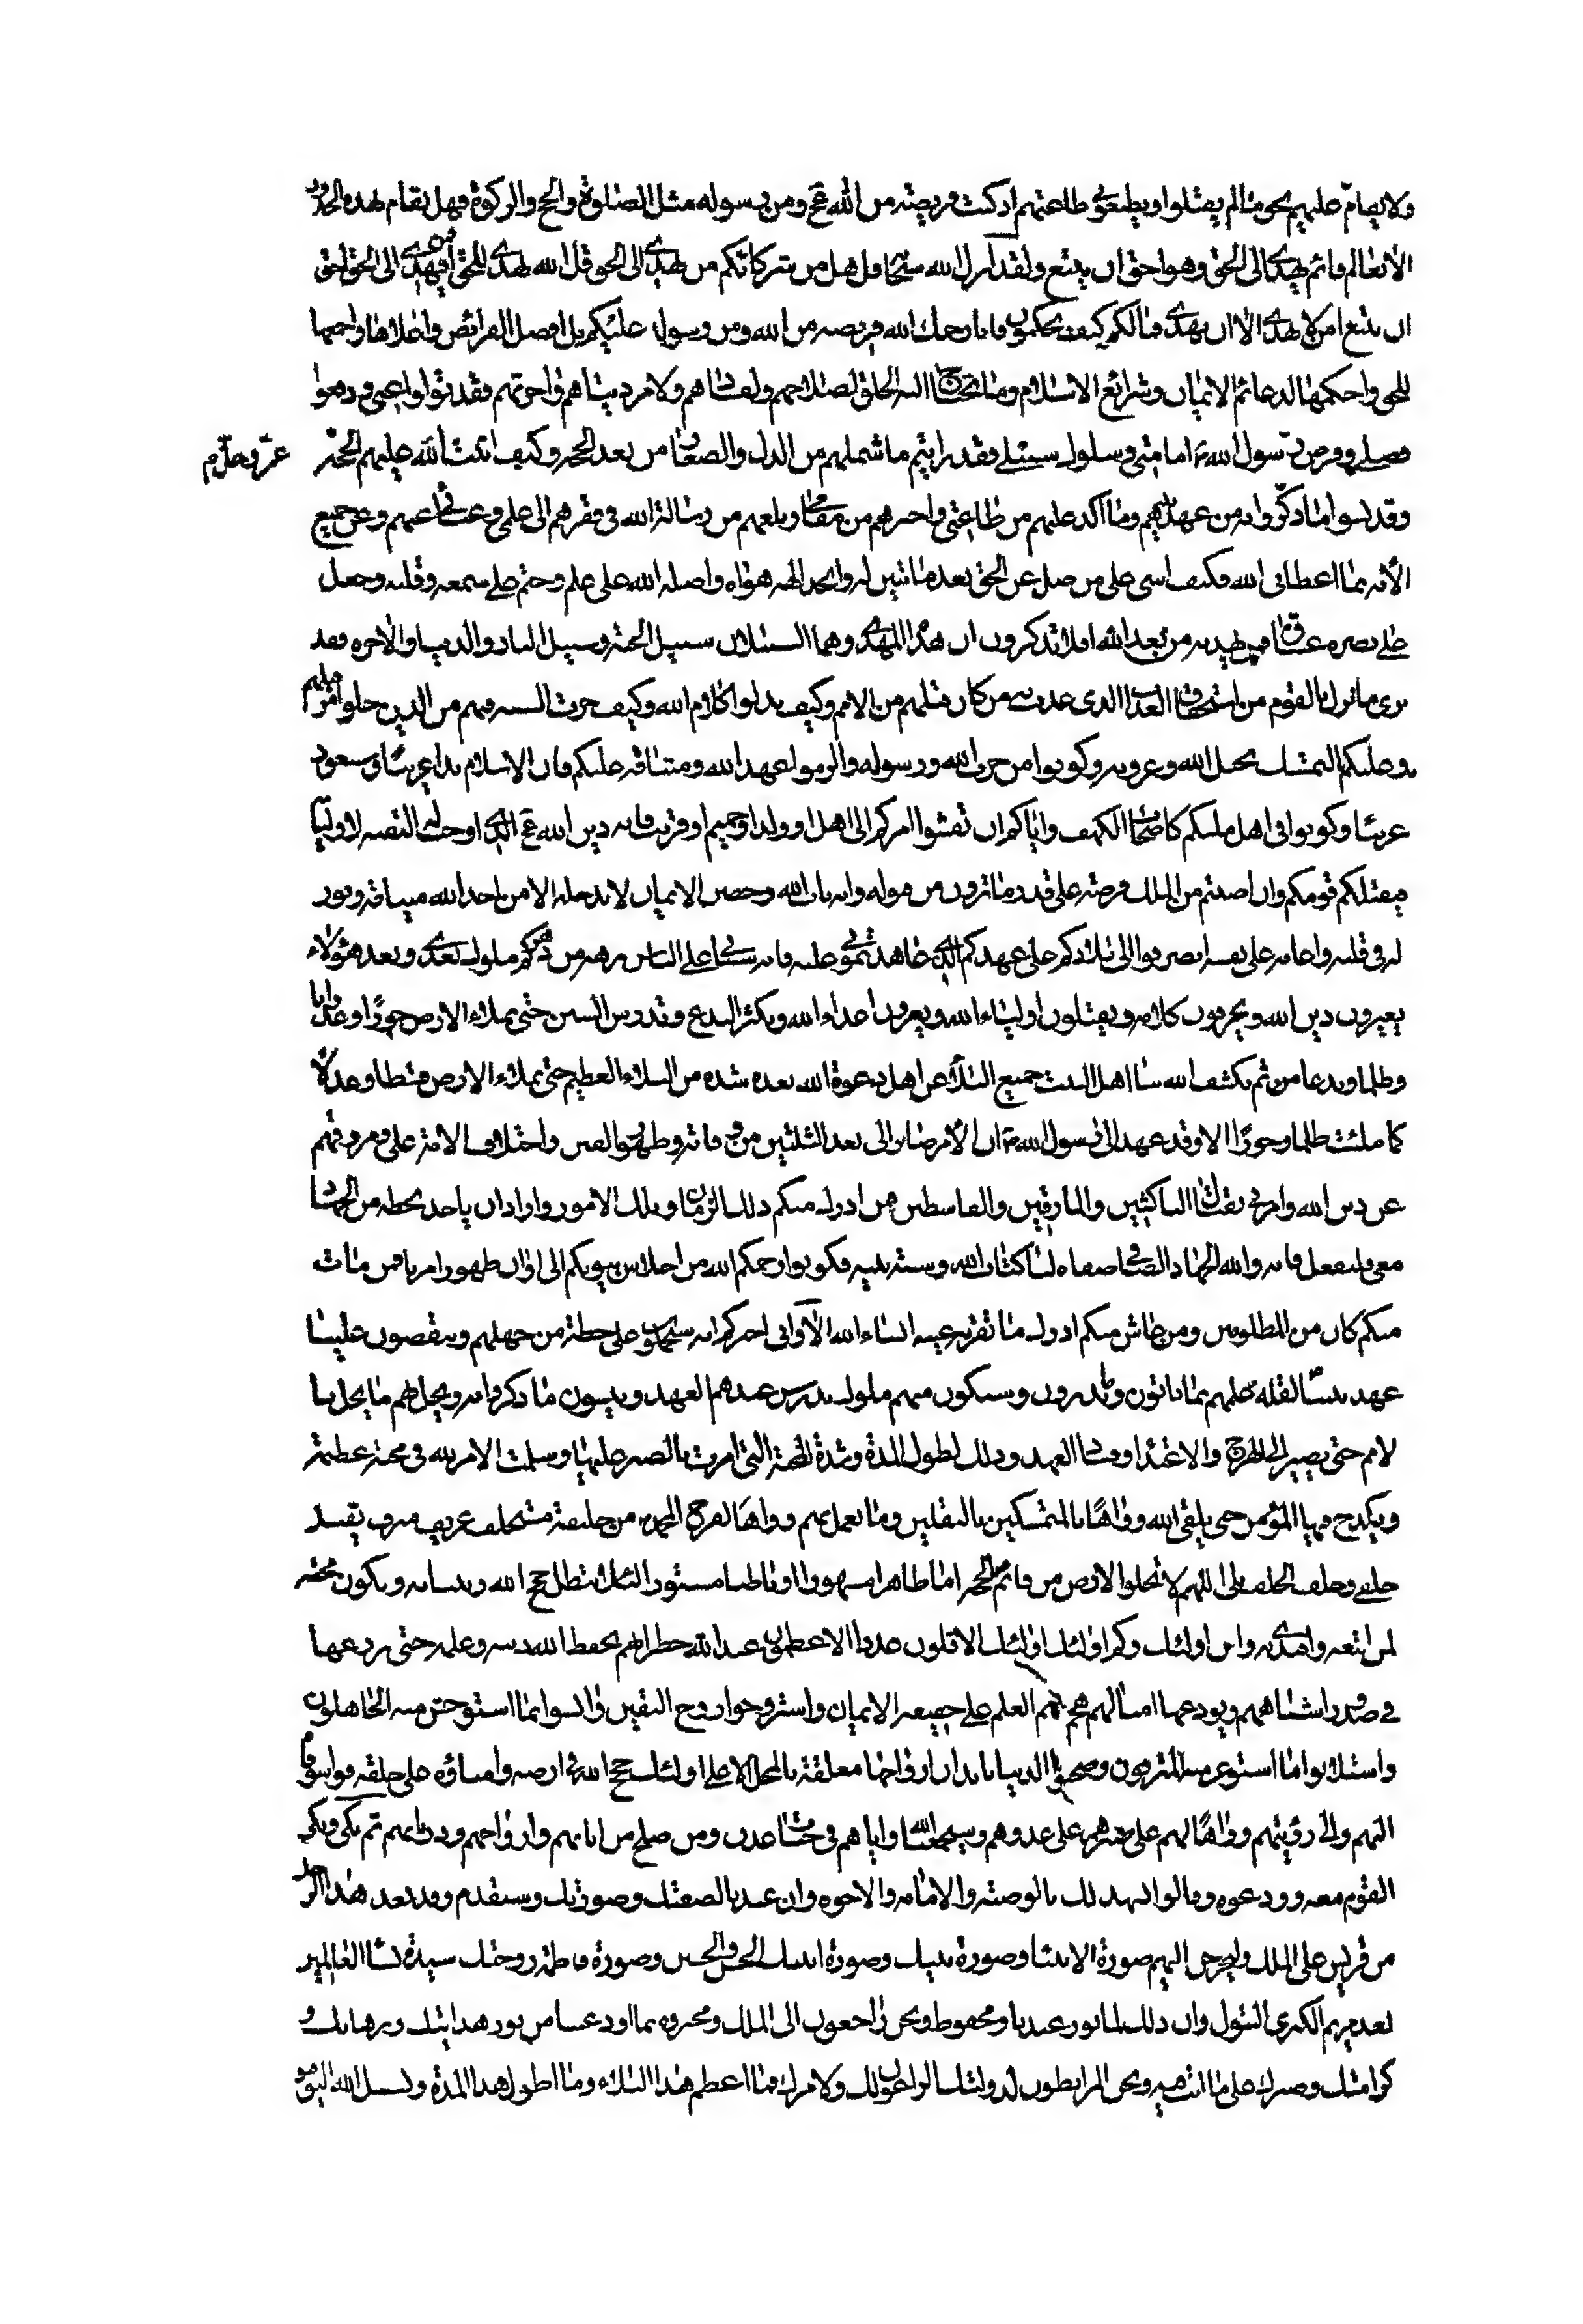 ولا يقام عليهم بحق ما لم يقتلوا ويطيعوني طاعتهم اذ كنت فريضة من الله عج ومن رسوله مثل الصلوة والحج والزكوة فهل يقام هذه الحدود
الا بعالم قائم يهدي الى الحق وهو احق ان يتبع ولقد انزل الله سبحانه قل هل من شركائكم من يهدي الى الحق قل الله يهدي للحق افمن يهدي الى الحق احق
ان يتبع امن لا يهدي الا ان يهدى فما لكم كيف تحكمون فانا رحمك الله فريضة من الله ومن رسوله عليكم بل افضل الفرائض واعلاها واجمعها
للحق واحكمها لدعائم الايمان وشرائع الاسلام وما يحتاج اليه الخلق لصلاحهم ولفسادهم ولامر دنياهم واخرتهم فقد تولوا عني ودفعوا
فضلي وفرض رسول الله امامتي وسلوك سبيلي فقد رايتم ما شملهم من الذل والصغار من بعد الحجة وكيف اثبت الله عليهم الحجة
عز وجل
وقد نسوا ما ذكروا به من عهد نبيهم وما اكد عليهم من طاعتي واخبرهم من مقامي وبلغهم من رسالة الله في فقرهم الى علمي وغنائي عنهم وعن جميع
الامة بما اعطاني الله فكيف اسى على من ضل عن الحق بعد ما تبين له واتخذ الهه هواه واضله الله على علم وختم على سمعه وقلبه وجعل
على بصره غشاوة فمن يهديه من بعد الله افلا تذكرون ان هذا المهدى وهما السبيلان سبيل الجنة وسبيل النار والدنيا والاخرة فقد
ترى ما نزل بالقوم من استحقاق العذاب الذي عذب به من كان قبلهم من الامم وكيف بدلوا كلام الله وكيف جرت السنة فيهم من الذين خلوا من قبلهم
وعليكم التمسك بحبل الله وعروته وكونوا من حزب الله ورسوله والزموا عهد الله وميثاقه عليكم فان الاسلام بدا غريبا وسيعود
غريبا وكونوا في اهل ملتكم كاصحاب الكهف واياكم ان تفشوا امركم الى اهل او ولد او حميم او قريب فانه دين الله عج الذي اوجب له التقية لاوليائه
فيقتلكم قومكم وان اصبتم من الملك فرصة على قدر ما ترون من قوله وانه باب الله وحصن الايمان لا يدخله الا من اخذ الله ميثاقه ونور
له في قلبه واعانه على نفسه انصرفوا الى بلادكم على عهدكم الذي عاهدتموني عليه فانه سياتي على الناس برهة من دهركم ملوك بعدي وبعد هؤلاء
يغيرون دين الله ويحرفون كلامه ويقتلون اولياء الله ويعزون اعداء الله وتكثر البدع وتدرس السنن حتى تملاء الارض جورا وعدوانا
وظلما وبدعا من ثم يكشف الله بنا اهل البيت جميع البلاء عن اهل دعوة الله بعد شدة من البلاء العظيم حتى تملاء الارض قسطا وعدلا
كما ملئت ظلما وجورا الا وقد عهد الي رسول الله ان الامر صائر الي بعد الثلثين من وفاته وظهور الفتن واختلاف الامة علي ومروقهم
عن دين الله وامرني بقتال الناكثين والمارقين والقاسطين فمن ادرك منكم ذلك الزمان وتلك الامور واراد ان ياخذ بحظه من الجهاد
معي فليفعل فانه والله الجهاد الصافي صفاه لنا كتاب الله وسنة نبيه فكونوا رحمكم الله من احلاس بيوتكم الى اوان ظهور امرنا فمن مات
منكم كان من المظلومين ومن عاش منكم ادرك ما تقر به عينه انشاء الله الا واني اخبركم انه سيحملون على خطة من جهلهم وينقضون علينا
عهد نبينا لقلة علمهم بما ياتون وما يذرون وسيكون منهم ملوك يدرس عندهم العهد وينسون ما ذكروا به ويحل بهم ما يحل بالا
لامم حتى يصير الى الهرج والاعتداء وفساد العهد وذلك لطول المدة وشدة المحنة التي امرت بالصبر عليها وسلمت الامر لله في محنة عظيمة
ويكدح فيها المؤمن حتى يلقى الله وواها للمتمسكين بالثقلين وما يعمل بهم وواها لفرج ال محمد من خليفة متخلف عريف مترف يقتل
خلفي وخلف الخلف بلى اللهم لا تخلو الارض من قائم بحجة اما ظاهرا مشهورا او باطنا مستورا لئلا تبطل حجج الله وبيناته ويكون محنة
لمن اتبعه واقتدى به واين اولئك وكم اولئك اولئك الاقلون عددا الاعظمون عند الله خطرا بهم يحفظ الله دينه وعلمه حتى يزرعها
في صدور اشباههم ويودعها امثالهم هجم بهم العلم على حقيقة الايمان واستروحوا روح اليقين وانسوا بما استوحش منه الجاهلون
واستلانوا ما استوعر منه المترفون وصحبوا الدنيا بابدان ارواحها معلقة بالمحل الاعلى اولئك حجج الله في ارضه وامناؤه على خلقه فواشوقاه
اليهم والى رؤيتهم وواها لهم على صبرهم على عدوهم وسيجمعنا الله واياهم في جنات عدن ومن صلح من ابائهم وازواجهم وذرياتهم ثم بكى وبكى
القوم معه وودعوه وقالوا نشهد لك بالوصية والامامة والاخوة وان عندنا لصفتك وصورتك وسيقدم وفد بعد هذا الرجل
من قريش على الملك وليخرجن اليهم صورة الانبياء وصورة نبيك وصورة ابنيك الحسن والحسين وصورة فاطمة زوجتك سيدة نساء العالمين
بعد مريم الكبرى البتول وان ذلك لماثور عندنا ومحفوظ ونحن راجعون الى الملك ومخبروه بما اودعتنا من نور هدايتك وبرهانك و
كرامتك وصبرك على ما انت فيه ونحن المرابطون لدولتك الداعون لك ولامرك فما اعظم هذا البلاء وما اطول هذه المدة ونسئل الله التوفيق